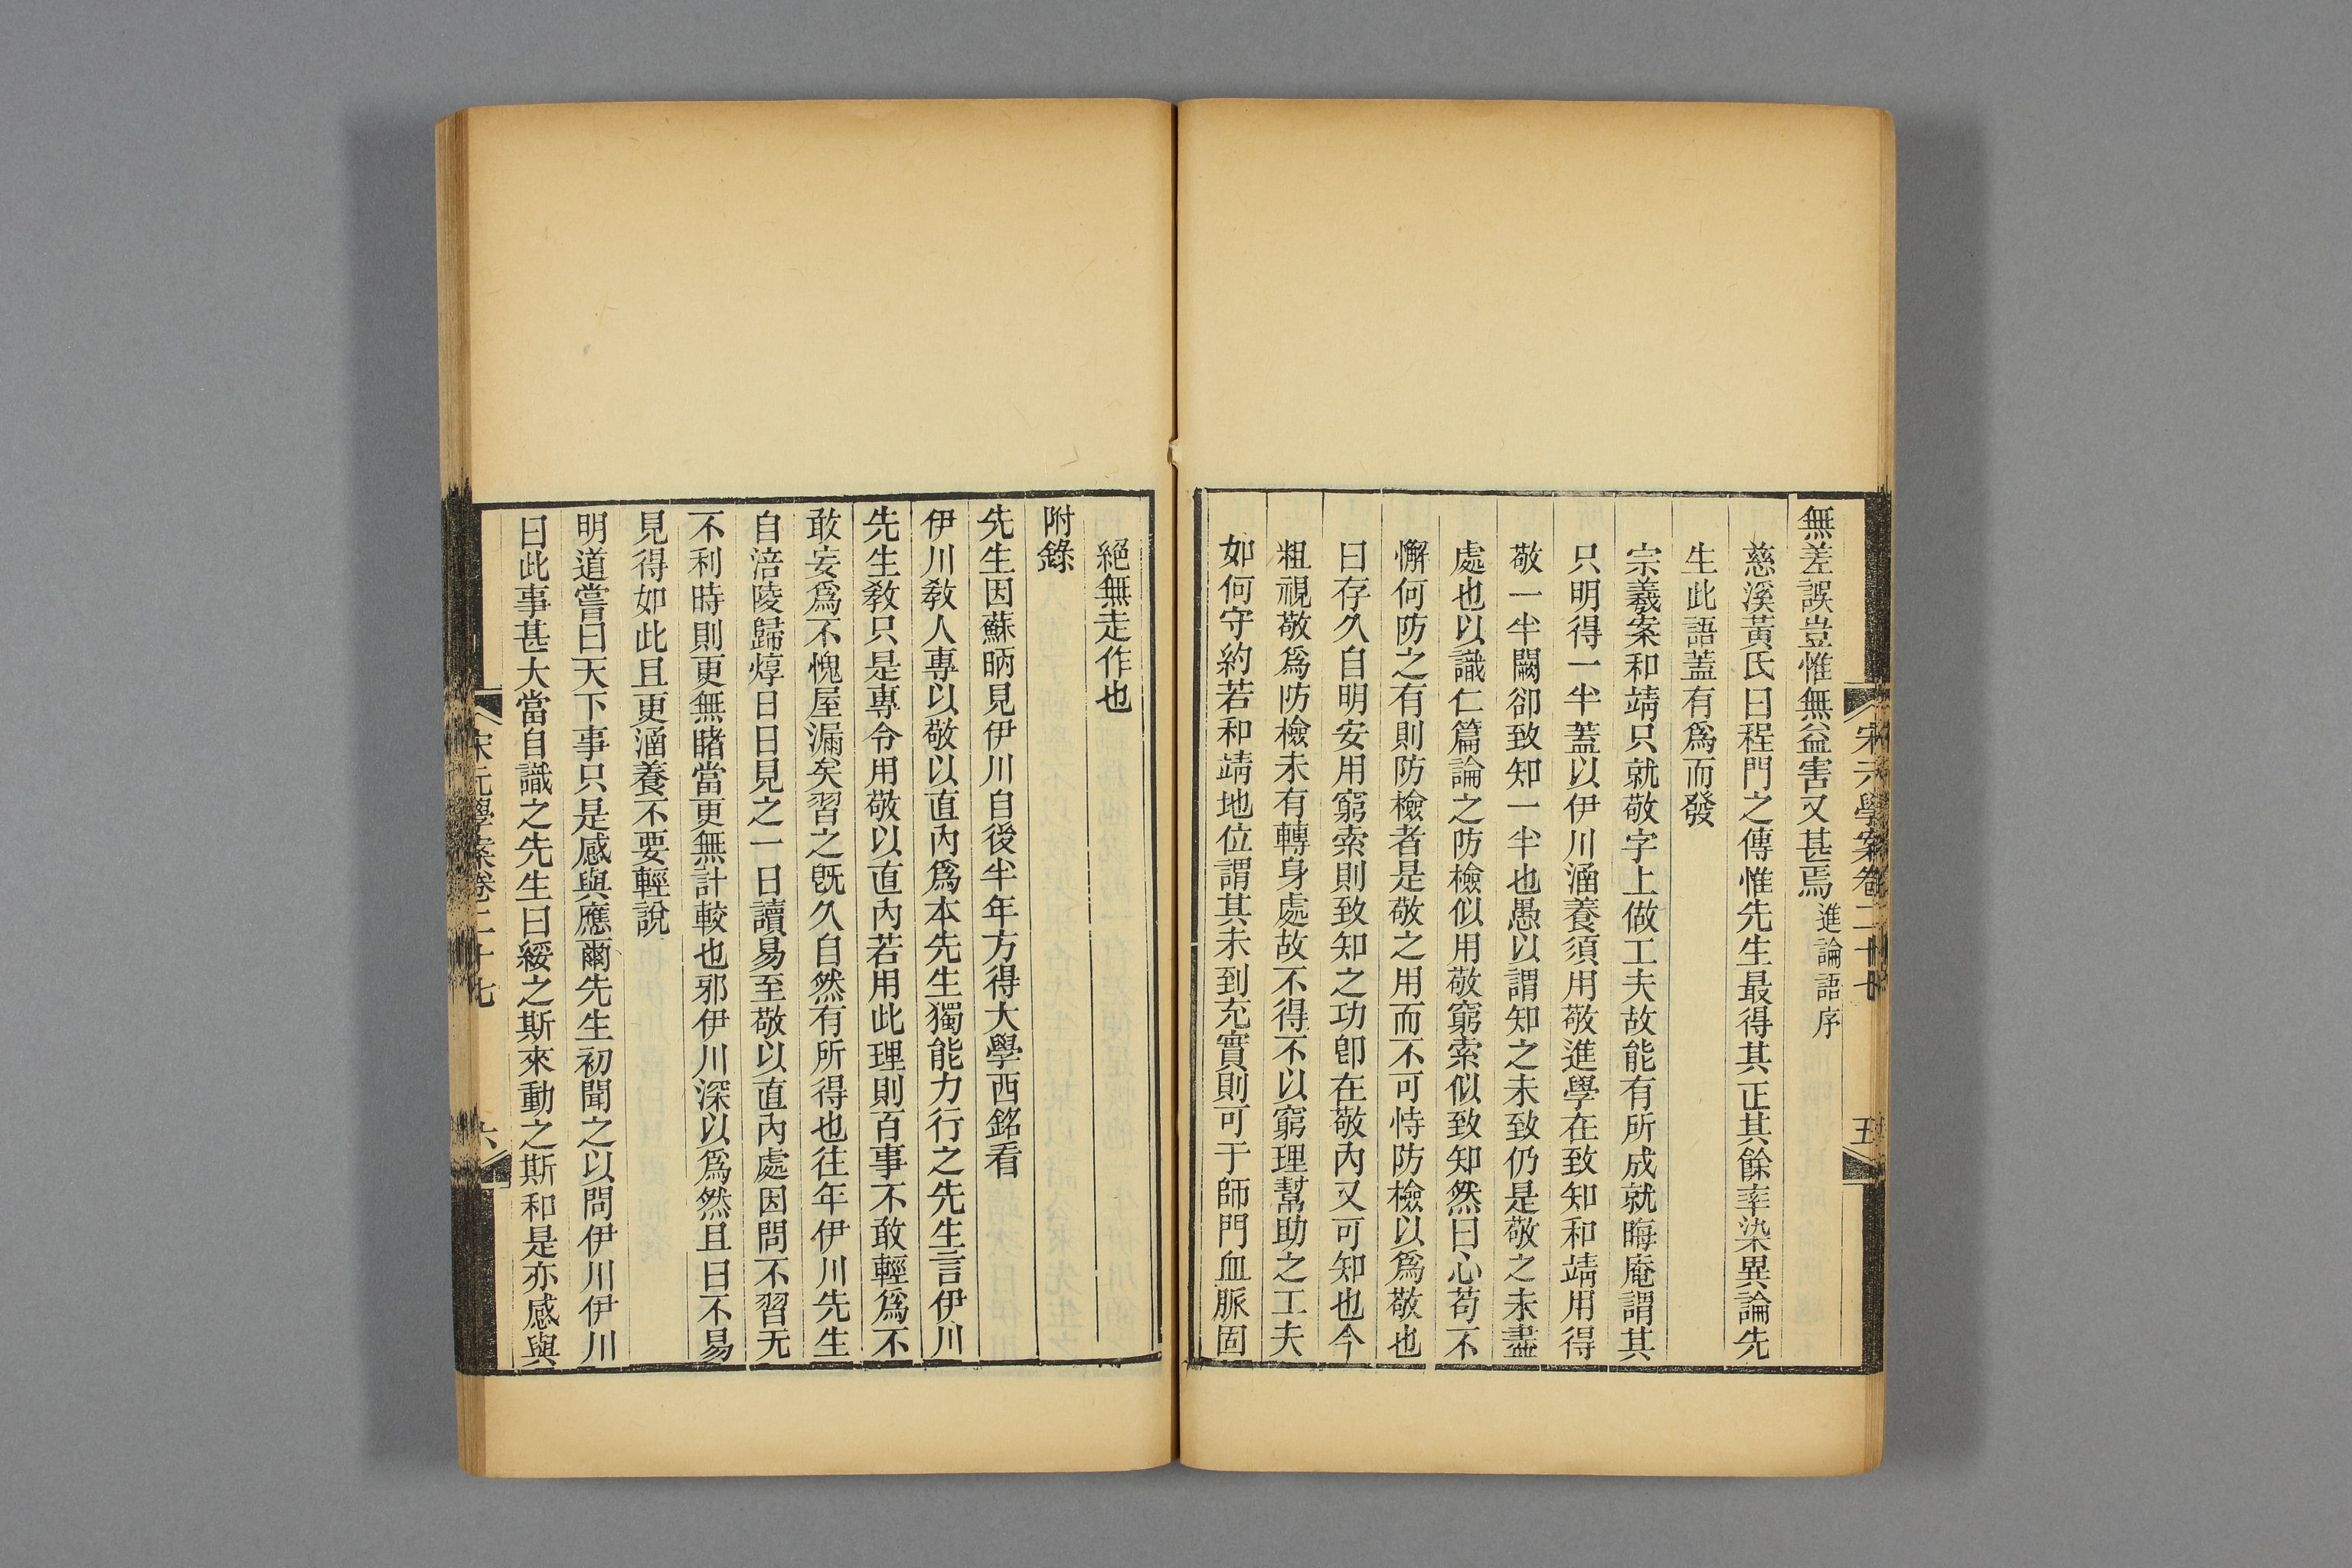 宋元學案卷二十七
五
無差誤豈惟無益害又甚焉進論語序
慈溪黃氏曰程門之傳惟先生最得其正其餘率染異論先
生此語蓋有爲而發
宗羲案和靖只就敬字上做工夫故能有所成就晦庵謂其
只明得一半蓋以伊川涵養須用敬進學在致知和靖用得
敬一半闕卻致知一半也愚以謂知之未致仍是敬之未盡
處也以識仁篇論之防檢似用敬窮索似致知然曰心苟不
懈何防之有則防檢者是敬之用而不可恃防檢以爲敬也
曰存久自明安用窮索則致知之功卽在敬內又可知也今
粗視敬爲防檢未有轉身處故不得不以窮理幫助之工夫
如何守約若和靖地位謂其未到充實則可于師門血脈固
絕無走作也
附錄
先生因蘇昞見伊川自後半年方得大學西銘看
伊川敎人專以敬以直內爲本先生獨能力行之先生言伊川
先生敎只是專令用敬以直內若用此理則百事不敢輕爲不
敢妄爲不愧屋漏矣習之旣久自然有所得也往年伊川先生
自涪陵歸焞日日見之一日讀易至敬以直內處因問不習无
不利時則更無睹當更無計較也邪伊川深以爲然且曰不易
見得如此且更涵養不要輕說
明道嘗曰天下事只是感與應爾先生初聞之以問伊川伊川
曰此事甚大當自識之先生曰綏之斯來動之斯和是亦感與
宋元學案卷二十七
六